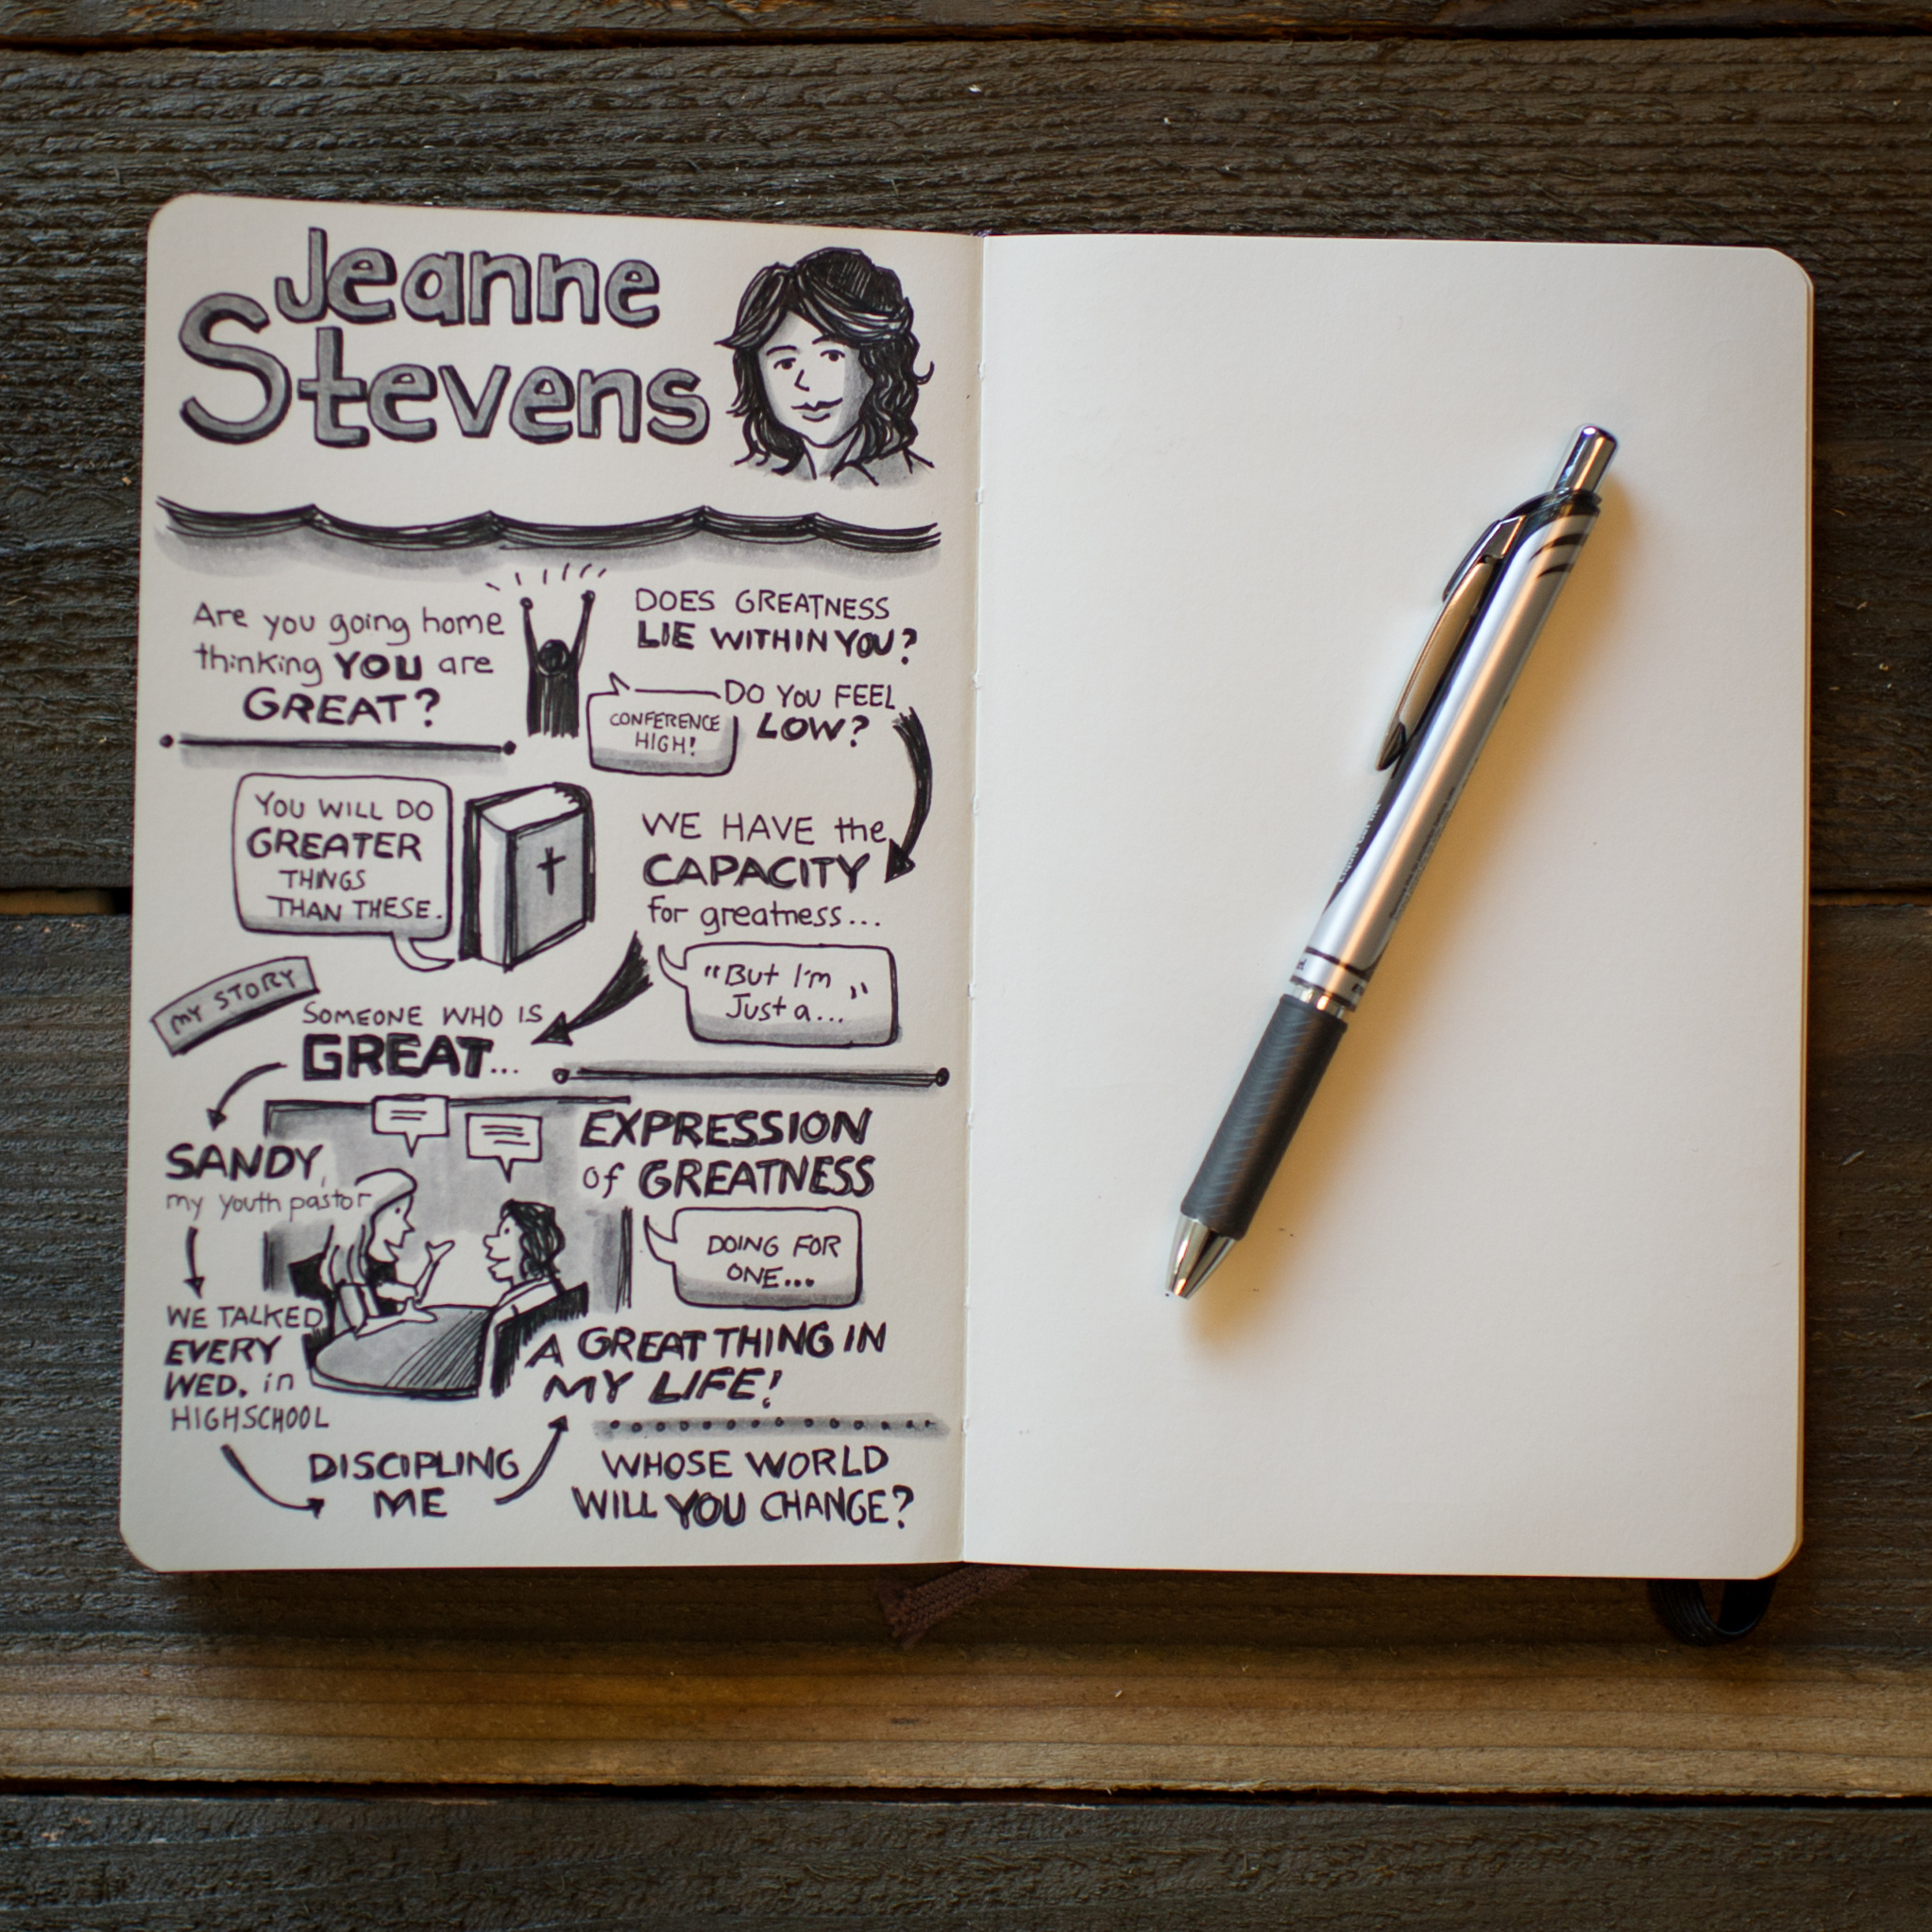 Jeanne
Stevens
Are you going home
thinking YOU are
GREAT?
DOES GREATNESS
LIE WITHIN YOU?
CONFERENCE
HIGH!
DO YOU FEEL
LOW?
YOU WILL DO
GREATER
THINGS
THAN THESE.
WE HAVE the
CAPACITY
for greatness...
"But I'm
Just a..."
MY STORY
SOMEONE WHO IS
GREAT...
SANDY,
my youth pastor
WE TALKED
EVERY
WED. in
HIGHSCHOOL
DISCIPLING
ME
EXPRESSION
of GREATNESS
DOING FOR
ONE...
A GREAT THING IN
MY LIFE!
WHOSE WORLD
WILL YOU CHANGE?